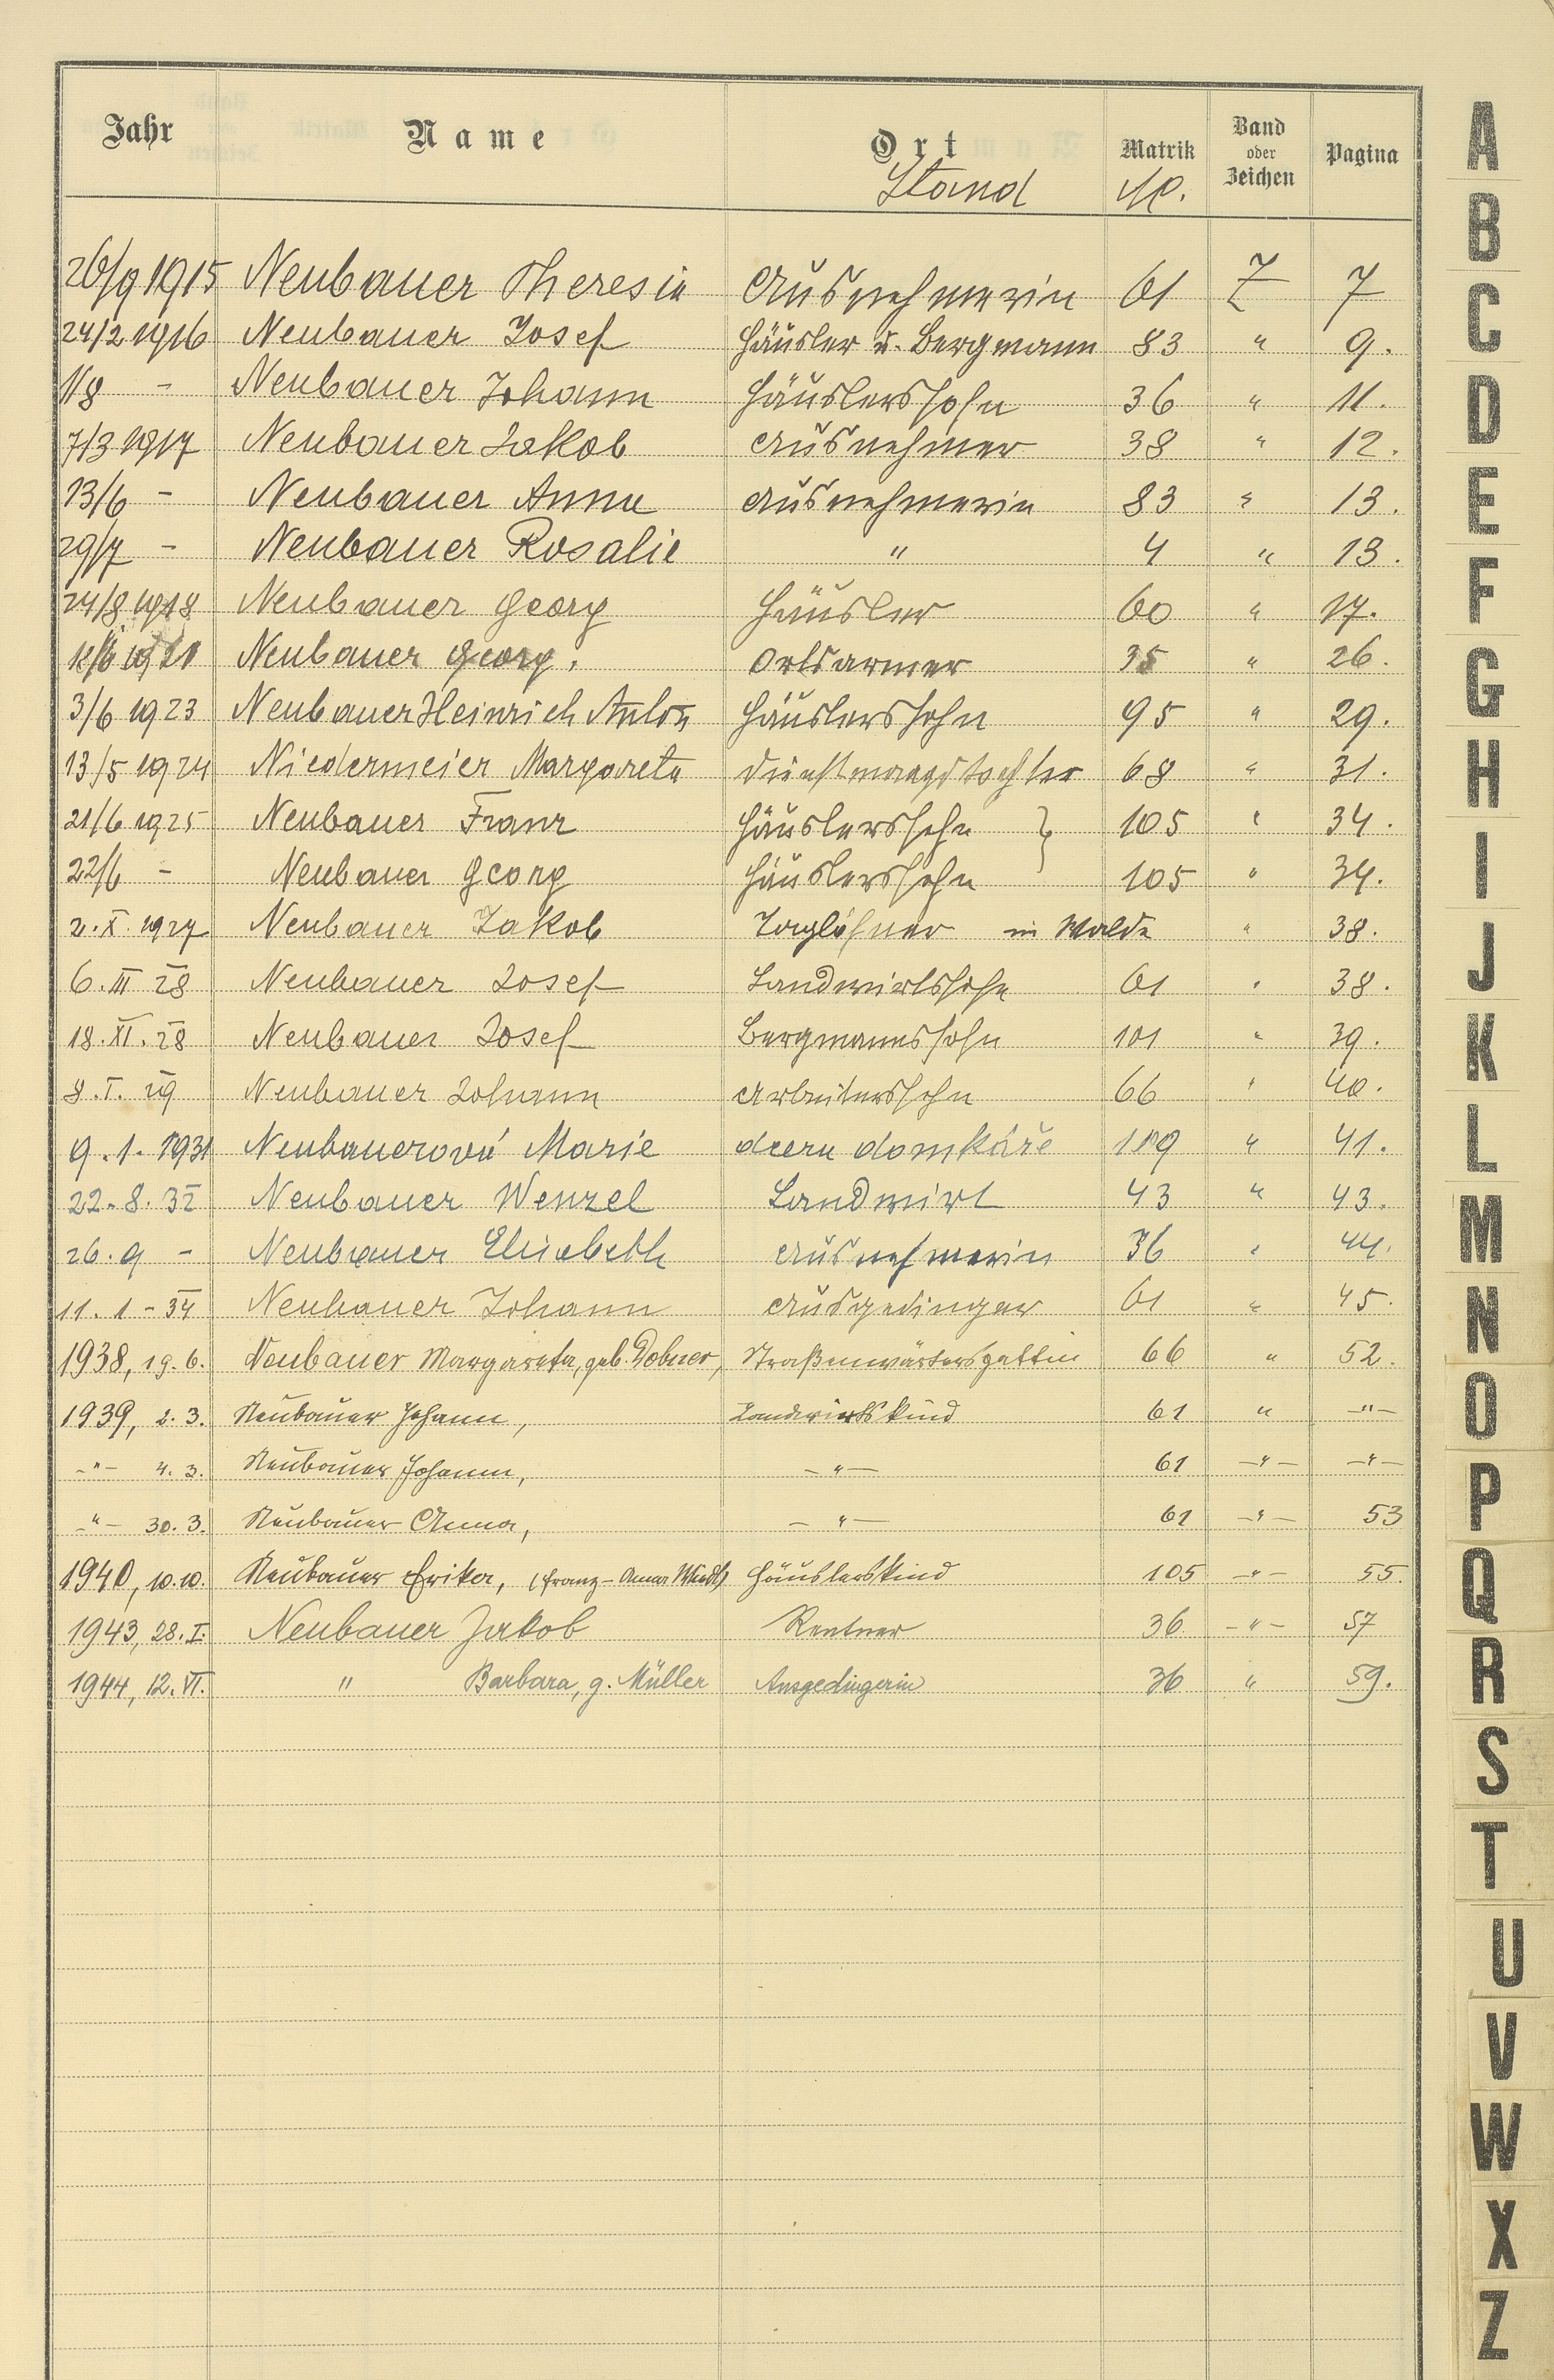 Jahr Name Ort Matrik Band oder Zeichen Pagina
Stand
26/9 1915 Neubauer Theresia Ausnehmerin 61 Z 7
24/2 1916 Neubauer Josef Häusler u. Bergmann 83 " 9.
1/8 - Neubauer Johann Häuslerssohn 36 " 11.
7/3 1917 Neubauer Jakob Ausnehmer 38 " 12.
13/6 - Neubauer Anna Ausnehmerin 83 " 13.
29/7 - Neubauer Rosalie " 4 " 13.
24/8 1918 Neubauer Georg Häusler 60 " 17.
Neubauer Georg. Ortsarmer 35 " 26.
3/6 1923 Neubauer Heinrich Anton Häuslerssohn 95 " 29.
13/5 1924 Niedermeier Margareta Dienstmagdtochter 68 " 31.
21/6 1925 Neubauer Franz Häuslerssohn } 105 " 34.
22/6 - Neubauer Georg Häuslerssohn 105 " 34.
2. X. 1927 Neubauer Jakob Taglöhner in Walde " 38.
6. III 28 Neubauer Josef Landwirtssohn 61 " 38.
18. XI. 28 Neubauer Josef Bergmannssohn 101 " 39.
8. I. 29 Neubauer Johann Arbeiterssohn 66 " 40.
9. 1. 1931 Neubauerová Marie dcera domkáře 109 " 41.
22. 8. 32 Neubauer Wenzel Landwirt 43 " 43.
26. 9 - Neubauer Elisabeth Ausnehmerin 36 " 44.
11. 1 - 34 Neubauer Johann Ausgedinger 61 " 45.
1938, 19. 6. Neubauer Margareta, geb. Dobner, Straßenwärtersgattin 66 " 52.
1939, 2. 3. Neubauer Johann, Landwirtskind 61 " -"-
-"- 4. 3. Neubauer Johann, -"- 61 -"- -"-
-"- 30. 3. Neubauer Anna, -"- 61 -"- 53
1940, 10. 10. Neubauer Erika, (Franz - Anna) Häuslerskind 105 -"- 55.
1943, 28. I. Neubauer Jakob Rentner 36 -"- 57
1944, 12. VI. " Barbara, g. Müller Ausgedingerin 36 " 59.
A
B
C
D
E
F
G
H
I
J
K
L
M
N
O
P
Q
R
S
T
U
V
W
X
Z